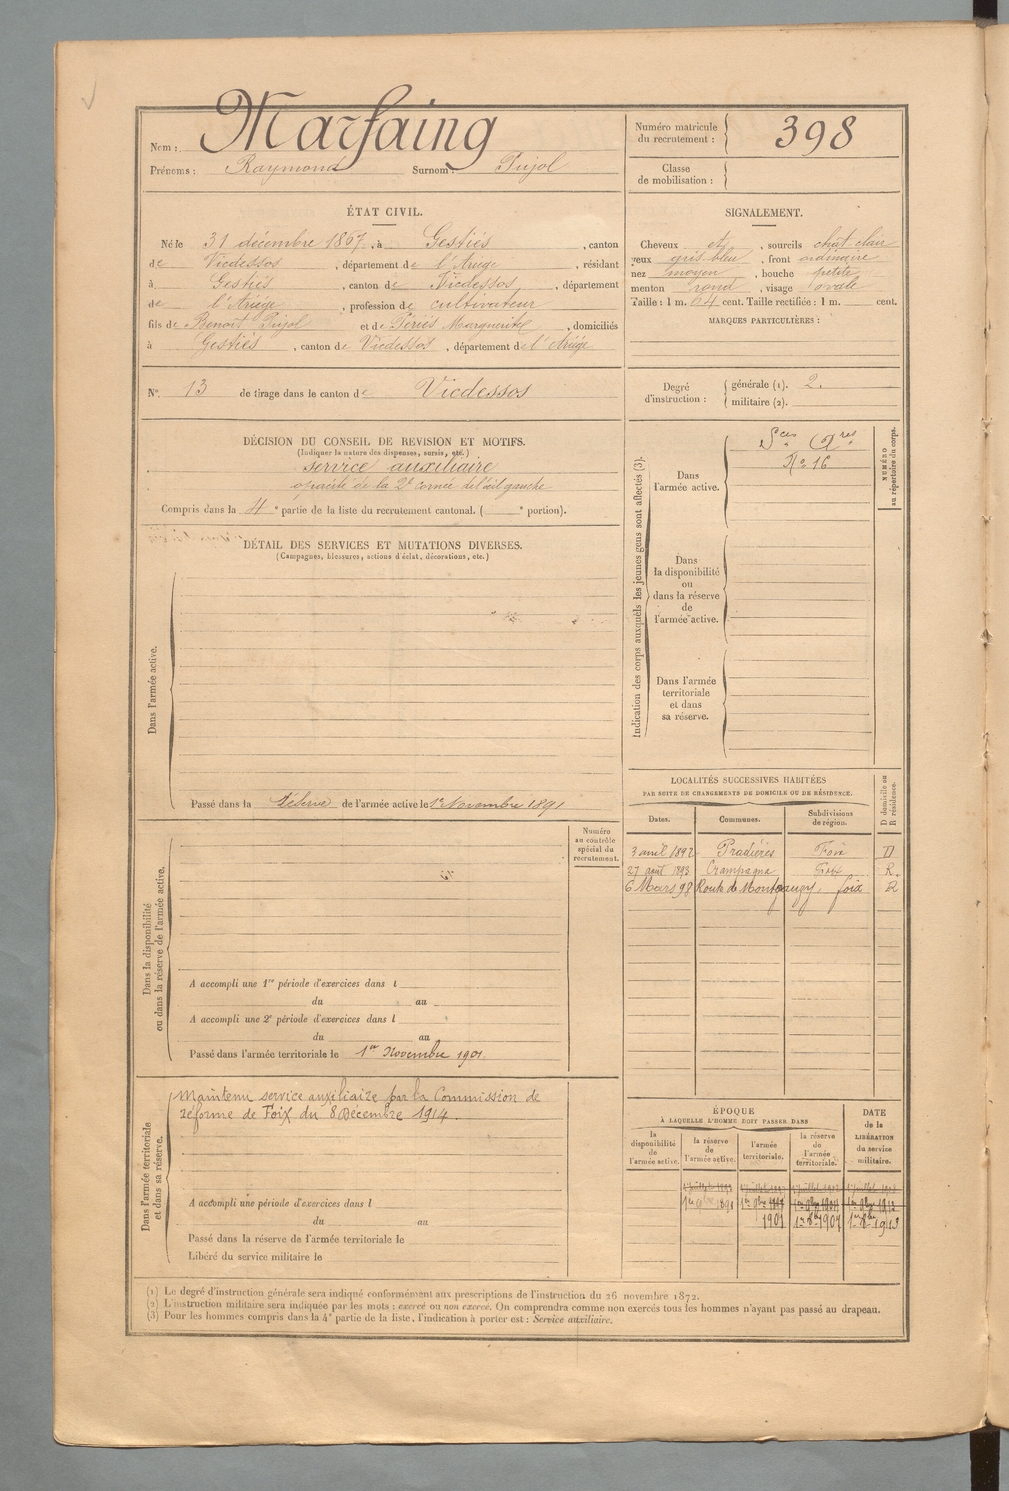 Marfaing
Nom :
Prénoms : Raymond Surnom : Pujol
Numéro matricule
du recrutement : 398
Classe
de mobilisation :
ÉTAT CIVIL.
Né le 31 décembre 1867, à Gestiés, canton
de Vicdessos, département de l'Ariège, résidant
à Gestiés, canton de Vicdessos, département
de l'Ariége, profession de cultivateur
fils de Benoit Pujol et de Périés Marguerite, domiciliés
à Gestiés, canton de Vicdessos, département de l'Ariége
SIGNALEMENT.
Cheveux et, sourcils chat. clair
yeux gris bleu, front ordinaire
nez moyen, bouche petite
menton rond, visage ovale
Taille : 1 m. 64 cent. Taille rectifiée : 1 m. cent.
MARQUES PARTICULIÈRES :
N° 13 de tirage dans le canton de Vicdessos
Degré
d'instruction :
générale (1). 2.
militaire (2).
DÉCISION DU CONSEIL DE REVISION ET MOTIFS.
(Indiquer la nature des dispenses, sursis, etc.)
service auxiliaire
opacité de la cornée de l'œil gauche
Compris dans la 4e partie de la liste du recrutement cantonal. ( e portion).
DÉTAIL DES SERVICES ET MUTATIONS DIVERSES.
(Campagnes, blessures, actions d'éclat, décorations, etc.)
Dans l'armée active.
Passé dans la réserve de l'armée active le 1er Novembre 1891
Indication des corps auxquels les jeunes gens sont affectés (3).
Dans
l'armée active.
Sces Ares
N° 16
NUMÉRO
au répertoire du corps.
Dans
la disponibilité
ou
dans la réserve
de
l'armée active.
Dans l'armée
territoriale
et dans
sa réserve.
Dans la disponibilité
ou dans la réserve de l'armée active.
Numéro
au contrôle
spécial du
recrutement.
A accompli une 1re période d'exercices dans l
du au
A accompli une 2e période d'exercices dans l
du au
Passé dans l'armée territoriale le 1er Novembre 1901
LOCALITÉS SUCCESSIVES HABITÉES
PAR SUITE DE CHANGEMENTS DE DOMICILE OU DE RÉSIDENCE.
Dates. Communes. Subdivisions
de région.
D domicile ou
R résidence.
3 avril 1892 Pradières Foix D
27 août 1893 Crampagna Foix R.
6 Mars 98 Route de Montgauzy, foix R
Dans l'armée territoriale
et dans sa réserve.
Maintenu service auxiliaire par la Commission de
réforme de Foix du 8 Décembre 1914
A accompli une période d'exercices dans l
du au
Passé dans la réserve de l'armée territoriale le
Libéré du service militaire le
ÉPOQUE
À LAQUELLE L'HOMME DOIT PASSER DANS
la
disponibilité
de
l'armée active.
la réserve
de
l'armée active.
l'armée
territoriale.
la réserve
de
l'armée
territoriale.
DATE
de la
LIBÉRATION
du service
militaire.
1er 9bre 1891
1901 1907 1913
(1) Le degré d'instruction générale sera indiqué conformément aux prescriptions de l'instruction du 26 novembre 1872.
(2) L'instruction militaire sera indiquée par les mots : exercé ou non exercé. On comprendra comme non exercés tous les hommes n'ayant pas passé au drapeau.
(3) Pour les hommes compris dans la 4e partie de la liste, l'indication à porter est : Service auxiliaire.